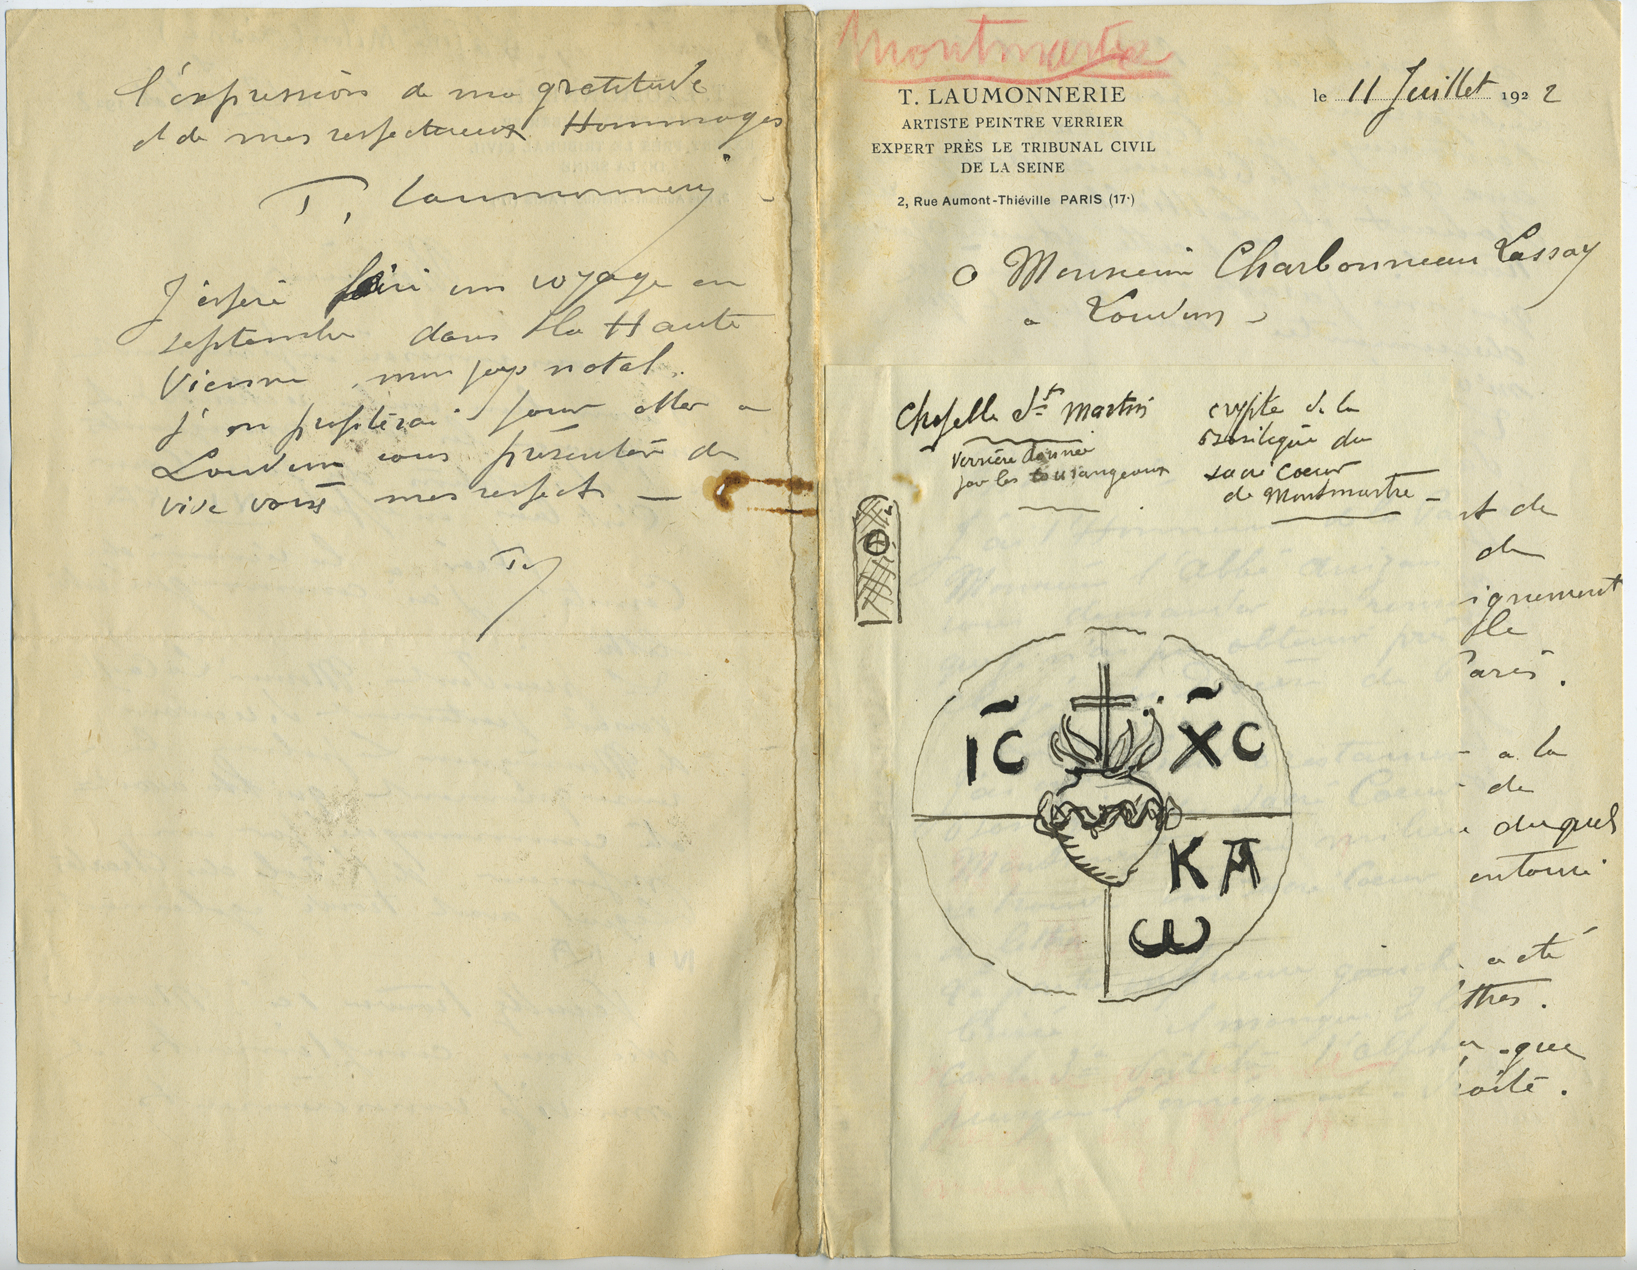 l'expression de ma gratitude
et de mes respectueux Hommages
T. Laumonnerie
J'espère faire un voyage en
septembre dans la Haute
Vienne mon pays natal.
J'en profiterai pour aller a
Loudun vous présenter de
vive voix mes respects —
TL
Montmartre
T. LAUMONNERIE
ARTISTE PEINTRE VERRIER
EXPERT PRÈS LE TRIBUNAL CIVIL
DE LA SEINE
2, Rue Aumont-Thiéville PARIS (17e)
le 11 Juillet 1922
a Monsieur Charbonneau Lassay
a Loudun
Chapelle St Martin
Verrière donnée
par les tourangeaux
crypte de la
Basilique du
sacré coeur
de Montmartre —
IC XC
KA
ω
et de
de
ignement
ple
Paris.
a la
de
duquel
entouré
a été
ttres.
que
oité.